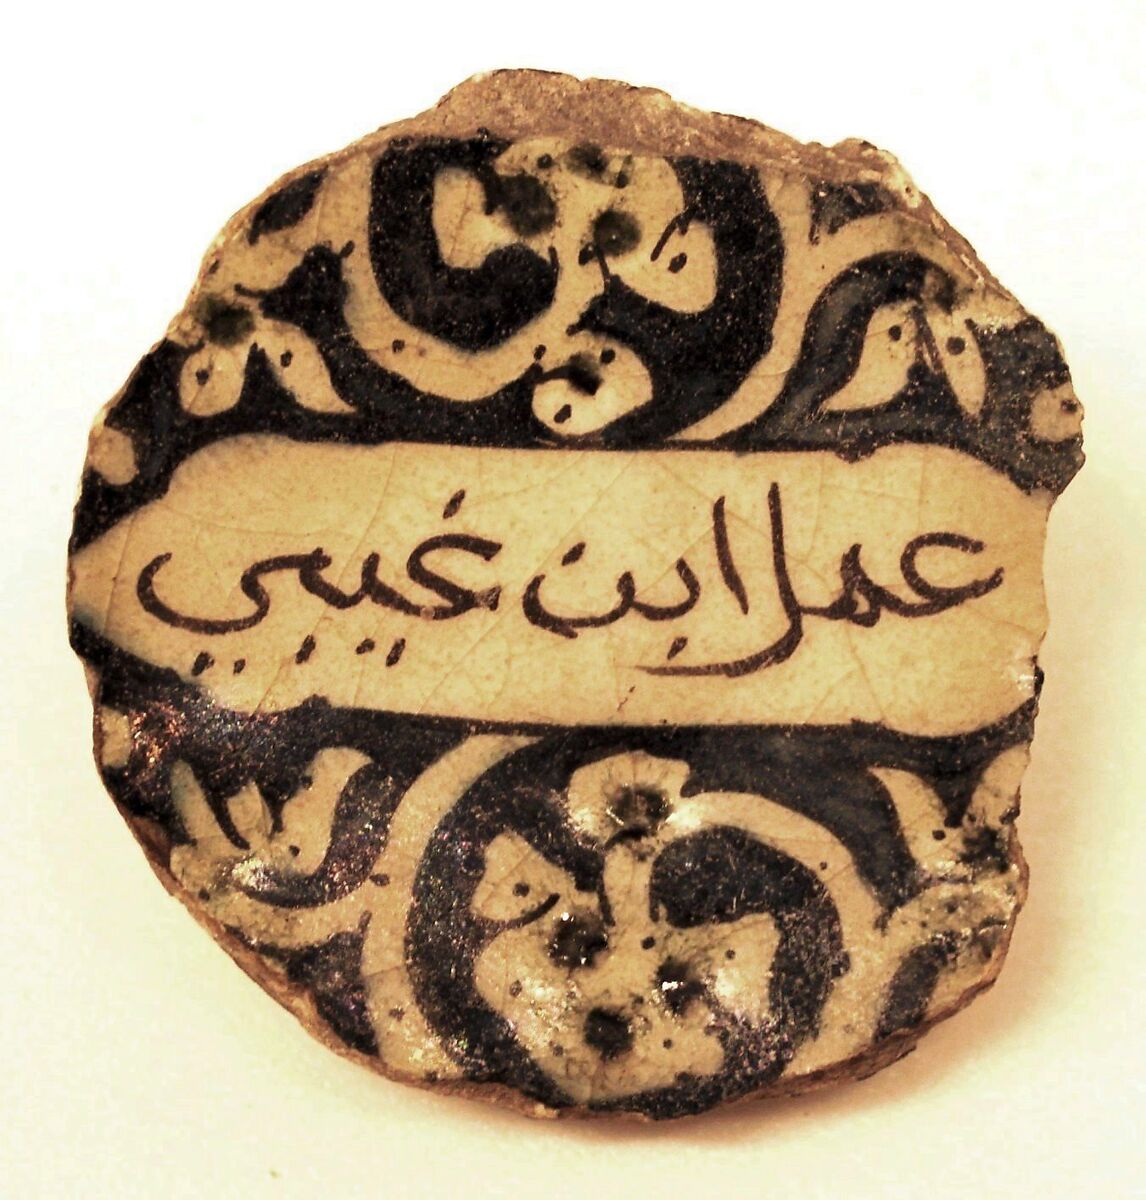 عمل ابن غيبي